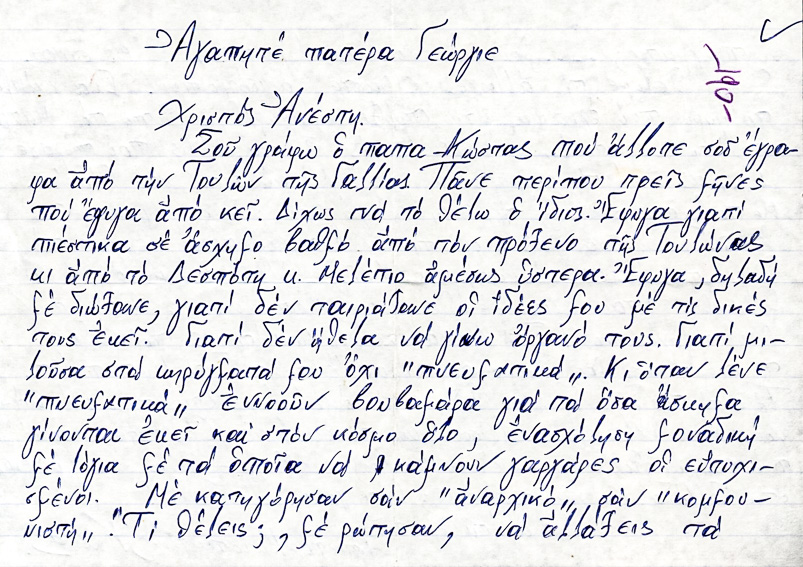 Ἀγαπητέ πατέρα Γεώργιε
Χριστός Ἀνέστη.
Σοῦ γράφω ὁ παπα-Κώστας πού ἄλλοτε σοῦ ἔγρα-
φα ἀπό τήν Τουλών τῆς Γαλλίας. Πᾶνε περίπου τρεῖς μῆνες
πού ἔφυγα ἀπό κεῖ. Δίχως νά τό θέλω ὁ ἴδιος. Ἔφυγα γιατί
πιέστικα σέ ἄσχημο βαθμό ἀπό τόν πρόξενο τῆς Τουλώνας
κι ἀπό τό Δεσπότη κ. Μελέτιο ἀμέσως ὕστερα. Ἔφυγα, δηλαδή
μέ διώξανε, γιατί δέν ταιριάζανε οἱ ἰδέες μου μέ τίς δικές
τους ἐκεῖ. Γιατί δέν ἤθελα νά γίνω ὄργανό τους. Γιατί μι-
λοῦσα στά κηρύγματά μου ὄχι "πνευματικά". Κι ὅταν λένε
"πνευματικά" ἐννοοῦν βουβαμάρα γιά τά ὅσα ἄσκημα
γίνονται ἐκεῖ καί στόν κόσμο ὅλο, ἐνασχόληση μοναδική
μέ λόγια μέ τά ὁποῖα νά κάμνουν γαργάρες οἱ εὐτυχι-
σμένοι. Μέ κατηγόρησαν σάν "ἀναρχικό", σάν "κομμου-
νιστή". "Τί θέλεις;, μέ ρώτησαν, νά ἀλλάξεις τά